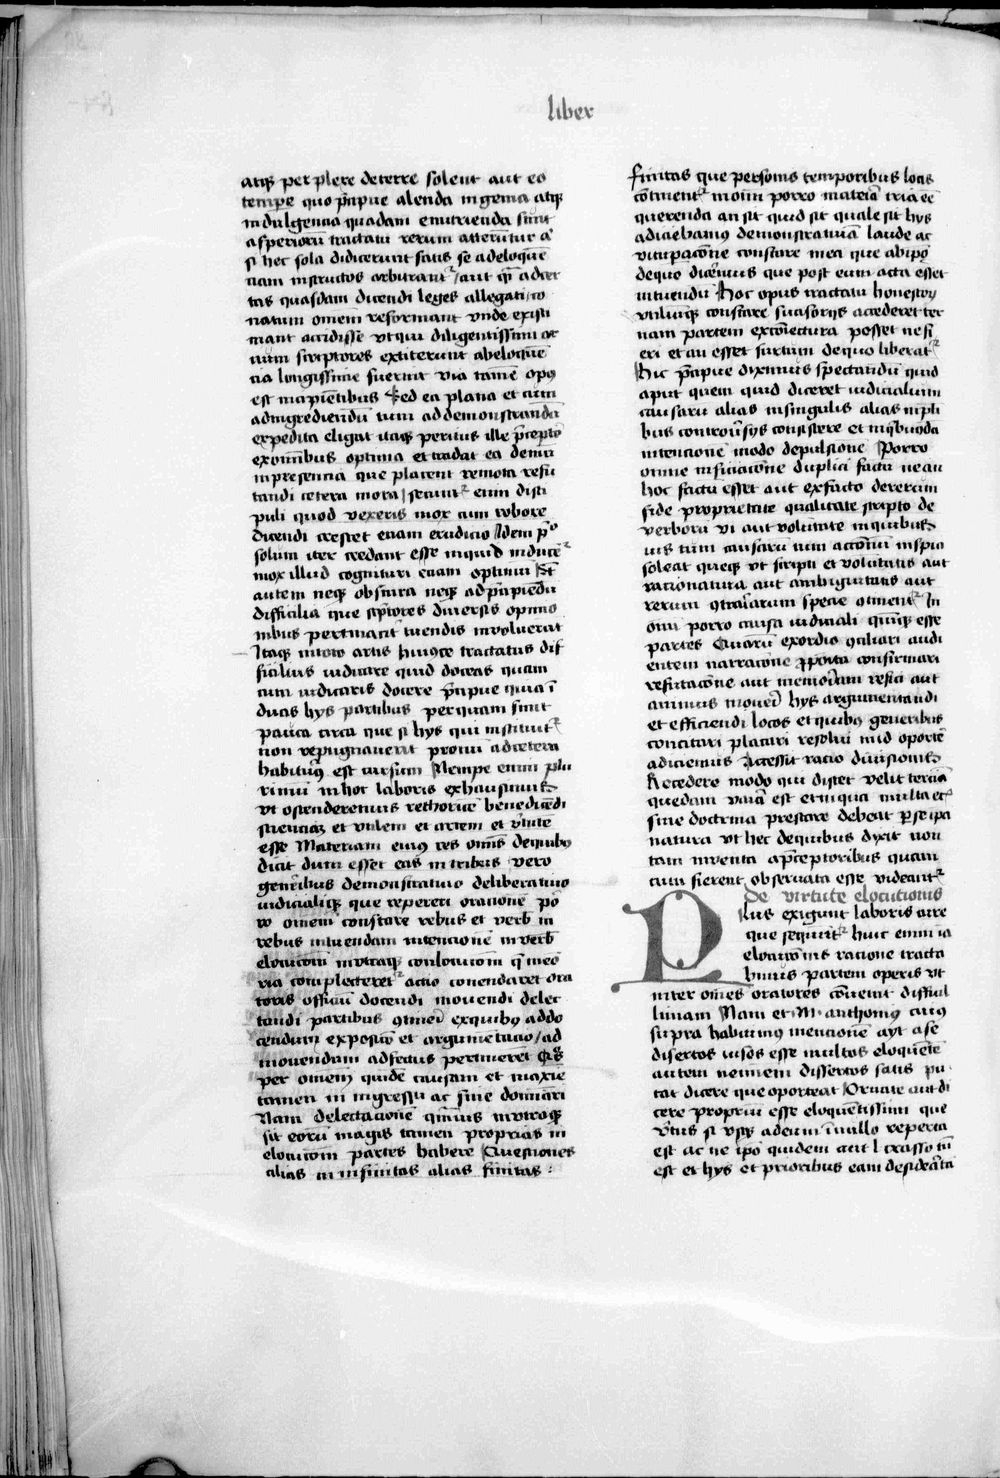 liber
atqꝫ per plexe deterre solent aut eo
tempe quo p̄cipue alenda ingenia atqꝫ
indulgencia quadam enutrienda sunt
asperiorū tractatu rerum atterūtur aꝰ
si hec sola didicerunt satis se ad eloquē
ciam instructos arbitrant᷑ aut
tas quasdam dicendi leges allegati
motum omnem reformidant vnde existi
mant accidisse vt qui diligentissimi ar
cium scriptores extiterunt ab eloquē
cia longissime fuerint via tamē opꝰ
est incipientibus Sed ea plana et cum
ad ingrediendū tum ad demonstrandū
expedita eligat itaqꝫ peritus ille p̄ceptor
ex omnibus optima et tradat ea demū
in presencia que placent remota refu
tandi cetera mora sequūt᷑ enim disci
puli quod vexeris mox cum robore
dicendi crescet eciam erudicio Idem pⁱo
solum iter credant esse in quod inducēt᷑
mox illud cognituri eciam optimū Sūt
autem neqꝫ obscura neqꝫ ad p̄cipiendū
difficilia que sc̄ptores diuersis opinio
nibus pertinacit̄ tuendis inuoluerūt
Itaqꝫ in toto artis huiusce tractatus dif
ficilius iudicare quid doceas quam
cum iudicaris docere p̄cipue quia ī
duas hys partibus perquam sunt
pauca circa que si hys qui instituit᷑
non repugnauerit pronū ad cetera
habiturꝰ est cursum Nempe enim plu
rimū in hoc laboris exhausimus
vt ostenderemus rethoricē bene dicēdi
scienciā et vtilem et artem et v̄tutē
esse Materiam eiꝰ res om̄s de quibꝰ
dicit dum esset eas in tribus vero
gen̄ibus demonstratiuo deliberatiuo
iudicialiqꝫ que reperiri oracionē po
ro omnem constare rebus et verbis in
rebus intuendam intencionē in verbis
elocucōm in vtraqꝫ conlocucōm q̄ meo
ria complecteret᷑ actio comendaret ora
toris officiū docendi mouendi delec
tandi partibus ꝯtineri ex quibꝰ addo
cendum exposicō et argumētacio ad
mouendum adfectus pertinerēt Qꝫ
per omnem quidē causam et maxiē
tamen in ingressu ac fine dominari
Nam delectacionē q̄muis in vtroqꝫ
sit eorū magis tamen proprias in
elocucōm partes habere Questiones
alias in infinitas alias finitas :
finitas que personis temporibus locis
cōtinent᷑ in om̄i porro materiā tria eē
querenda an sit quid sit quale sit hys
adiciebamus demonstratiuā laude ac
vitupacōne constare in ea que ab ipo
de quo dicerimus que post eum acta esset
intuendū Hoc opus tractatu honestorū
vtiliumqꝫ constare suasorijs accederet ter
ciam partem ex coniectura posset ne fi
eri et an esset futurum de quo liberat᷑
Hic p̄cipue diximus spectandū quid
aput quem quid diceret iudicialium
causarū alias in singulis alias in pli
bus controu̅sijs consistere et in q̄busda
intencionē modo depulsione Porro
omne inficiacōne duplici factū ne an
hoc factū esset aut ex facto de rerum
fide proprietate qualitate scripto de
verborū vi aut volūtate in quibus
uis tum causarū tum actōm inspici
soleat queqꝫ vt scripti et volūtatis aut
racionatiua aut ambiguitatis aut
rerum ꝯtrariarum specie ꝯtinent᷑ In
omi porro causa iudiciali quinqꝫ esse
partes Quarū exordio ꝯciliari audi
entem narracione proposita confirmari
refutacōne aut memoriam refici aut
animus moueri hys argumentandi
et efficiendi locos et quibꝰ generibus
concitari placari resolui iud oportē
adiciemus Accessit racio diuisionis
Accedere modo qui discet velit terciā
quedam viam est et in qua multa etꝰ
sine doctrina prestare debeat p se ipa
natura vt hec de quibus dixit non
tam inuenta a p̄ceptoribus quam
cum fierent obseruata esse videant᷑
De virtute elocutionis
Plus exigunt laboris cure
que sequūt᷑ huic enim ia
elocucōnis racione tracta
bimus partem operis vt
inter om̄es oratores cōuenit difficil
limam Nam et M anthoniꝰ cuiꝰ
supra habuimꝰ mencionē ayt a se
disertos uisos esse multos eloquētē
autem neminem Dissertos satis pu
tat dicere que oporteat Ornate aut di
cere propriū esse eloquētissimi que
v̄tus si vsqꝫ ad eum ī nullo reperta
est ac ne ipō quidem aut l crasso cū
est et hys et prioribus eam desiderata